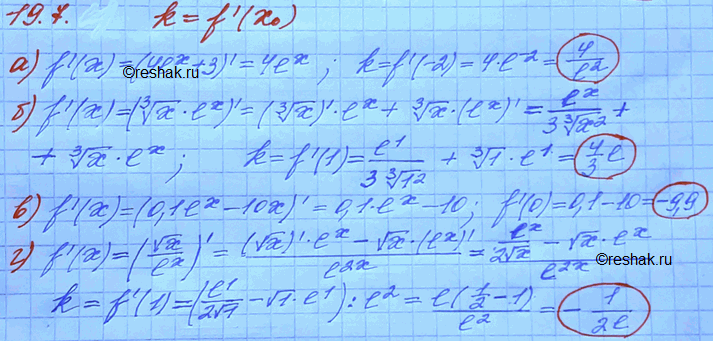 19.7. k = f'(x₀)
а) f'(x) = (4eˣ + 3)' = 4eˣ ; k = f'(-2) = 4·e⁻² = 4/e²
©reshak.ru
б) f'(x) = (∛x · eˣ)' = (∛x)' · eˣ + ∛x · (eˣ)' = eˣ/(3∛x²) +
+ ∛x · eˣ ; k = f'(1) = e¹/(3∛1²) + ∛1 · e¹ = 4/3 e
в) f'(x) = (0,1eˣ - 10x)' = 0,1·eˣ - 10 ; f'(0) = 0,1 - 10 = -9,9
г) f'(x) = (√x/eˣ)' = ((√x)' · eˣ - √x · (eˣ)')/e²ˣ = (eˣ/(2√x) - √x · eˣ)/e²ˣ
©reshak.ru
k = f'(1) = (e¹/(2√1) - √1 · e¹) : e² = e(1/2 - 1)/e² = - 1/(2e)